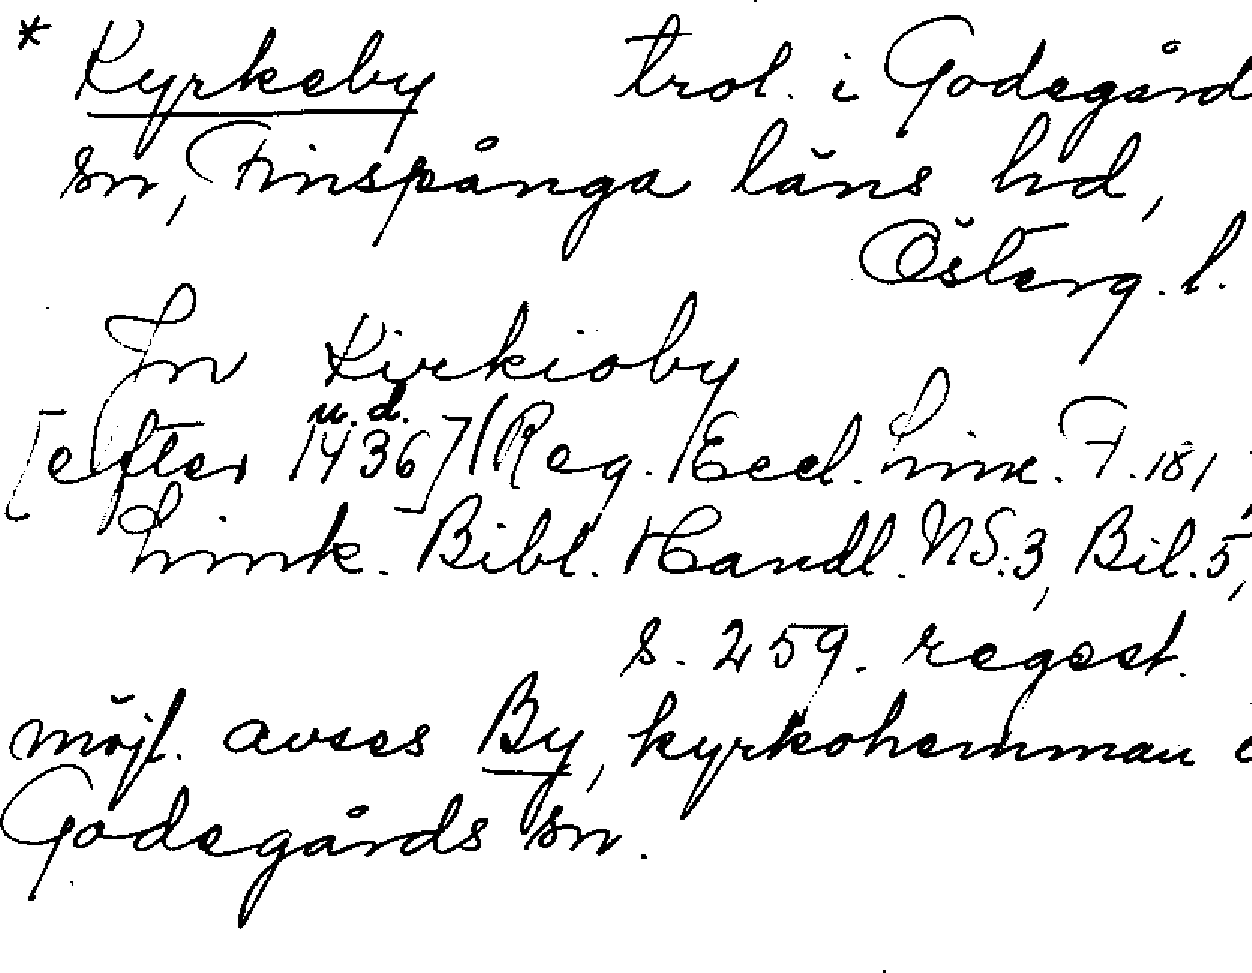 * Kyrkeby trol. i Godegård
sn, Finspånga läns hd,
Österg. l.
Jn Kirkioby
u. d.
[efter 1436] (Reg. Eccl. Linc. F. 181,
Link. Bibl. Handl. NS:3, Bil. 5,
s. 259. regest.
möjl. avses By, kyrkohemman i
Godegårds sn.